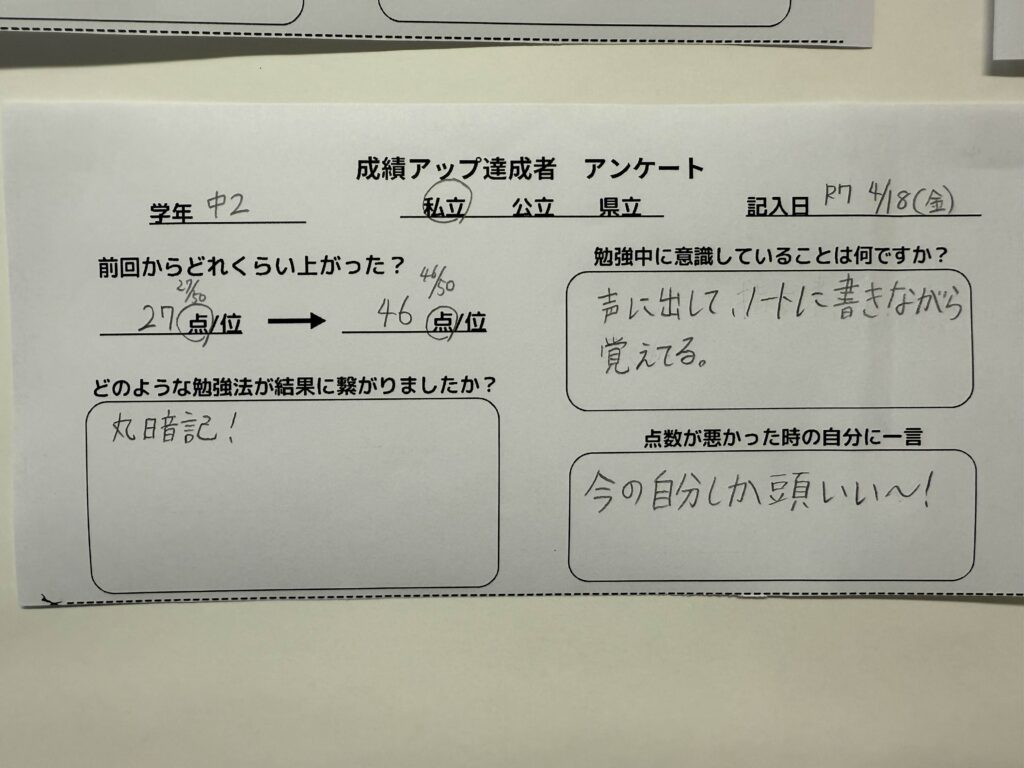 成績アップ達成者　アンケート
学年 中2　私立　公立　県立　記入日 R7 4/18(金)
前回からどれくらい上がった？
27/50　46/50
27 点/位 → 46 点/位
どのような勉強法が結果に繋がりましたか？
丸暗記！
勉強中に意識していることは何ですか？
声に出して、ノートに書きながら
覚えてる。
点数が悪かった時の自分に一言
今の自分しか頭いい〜！